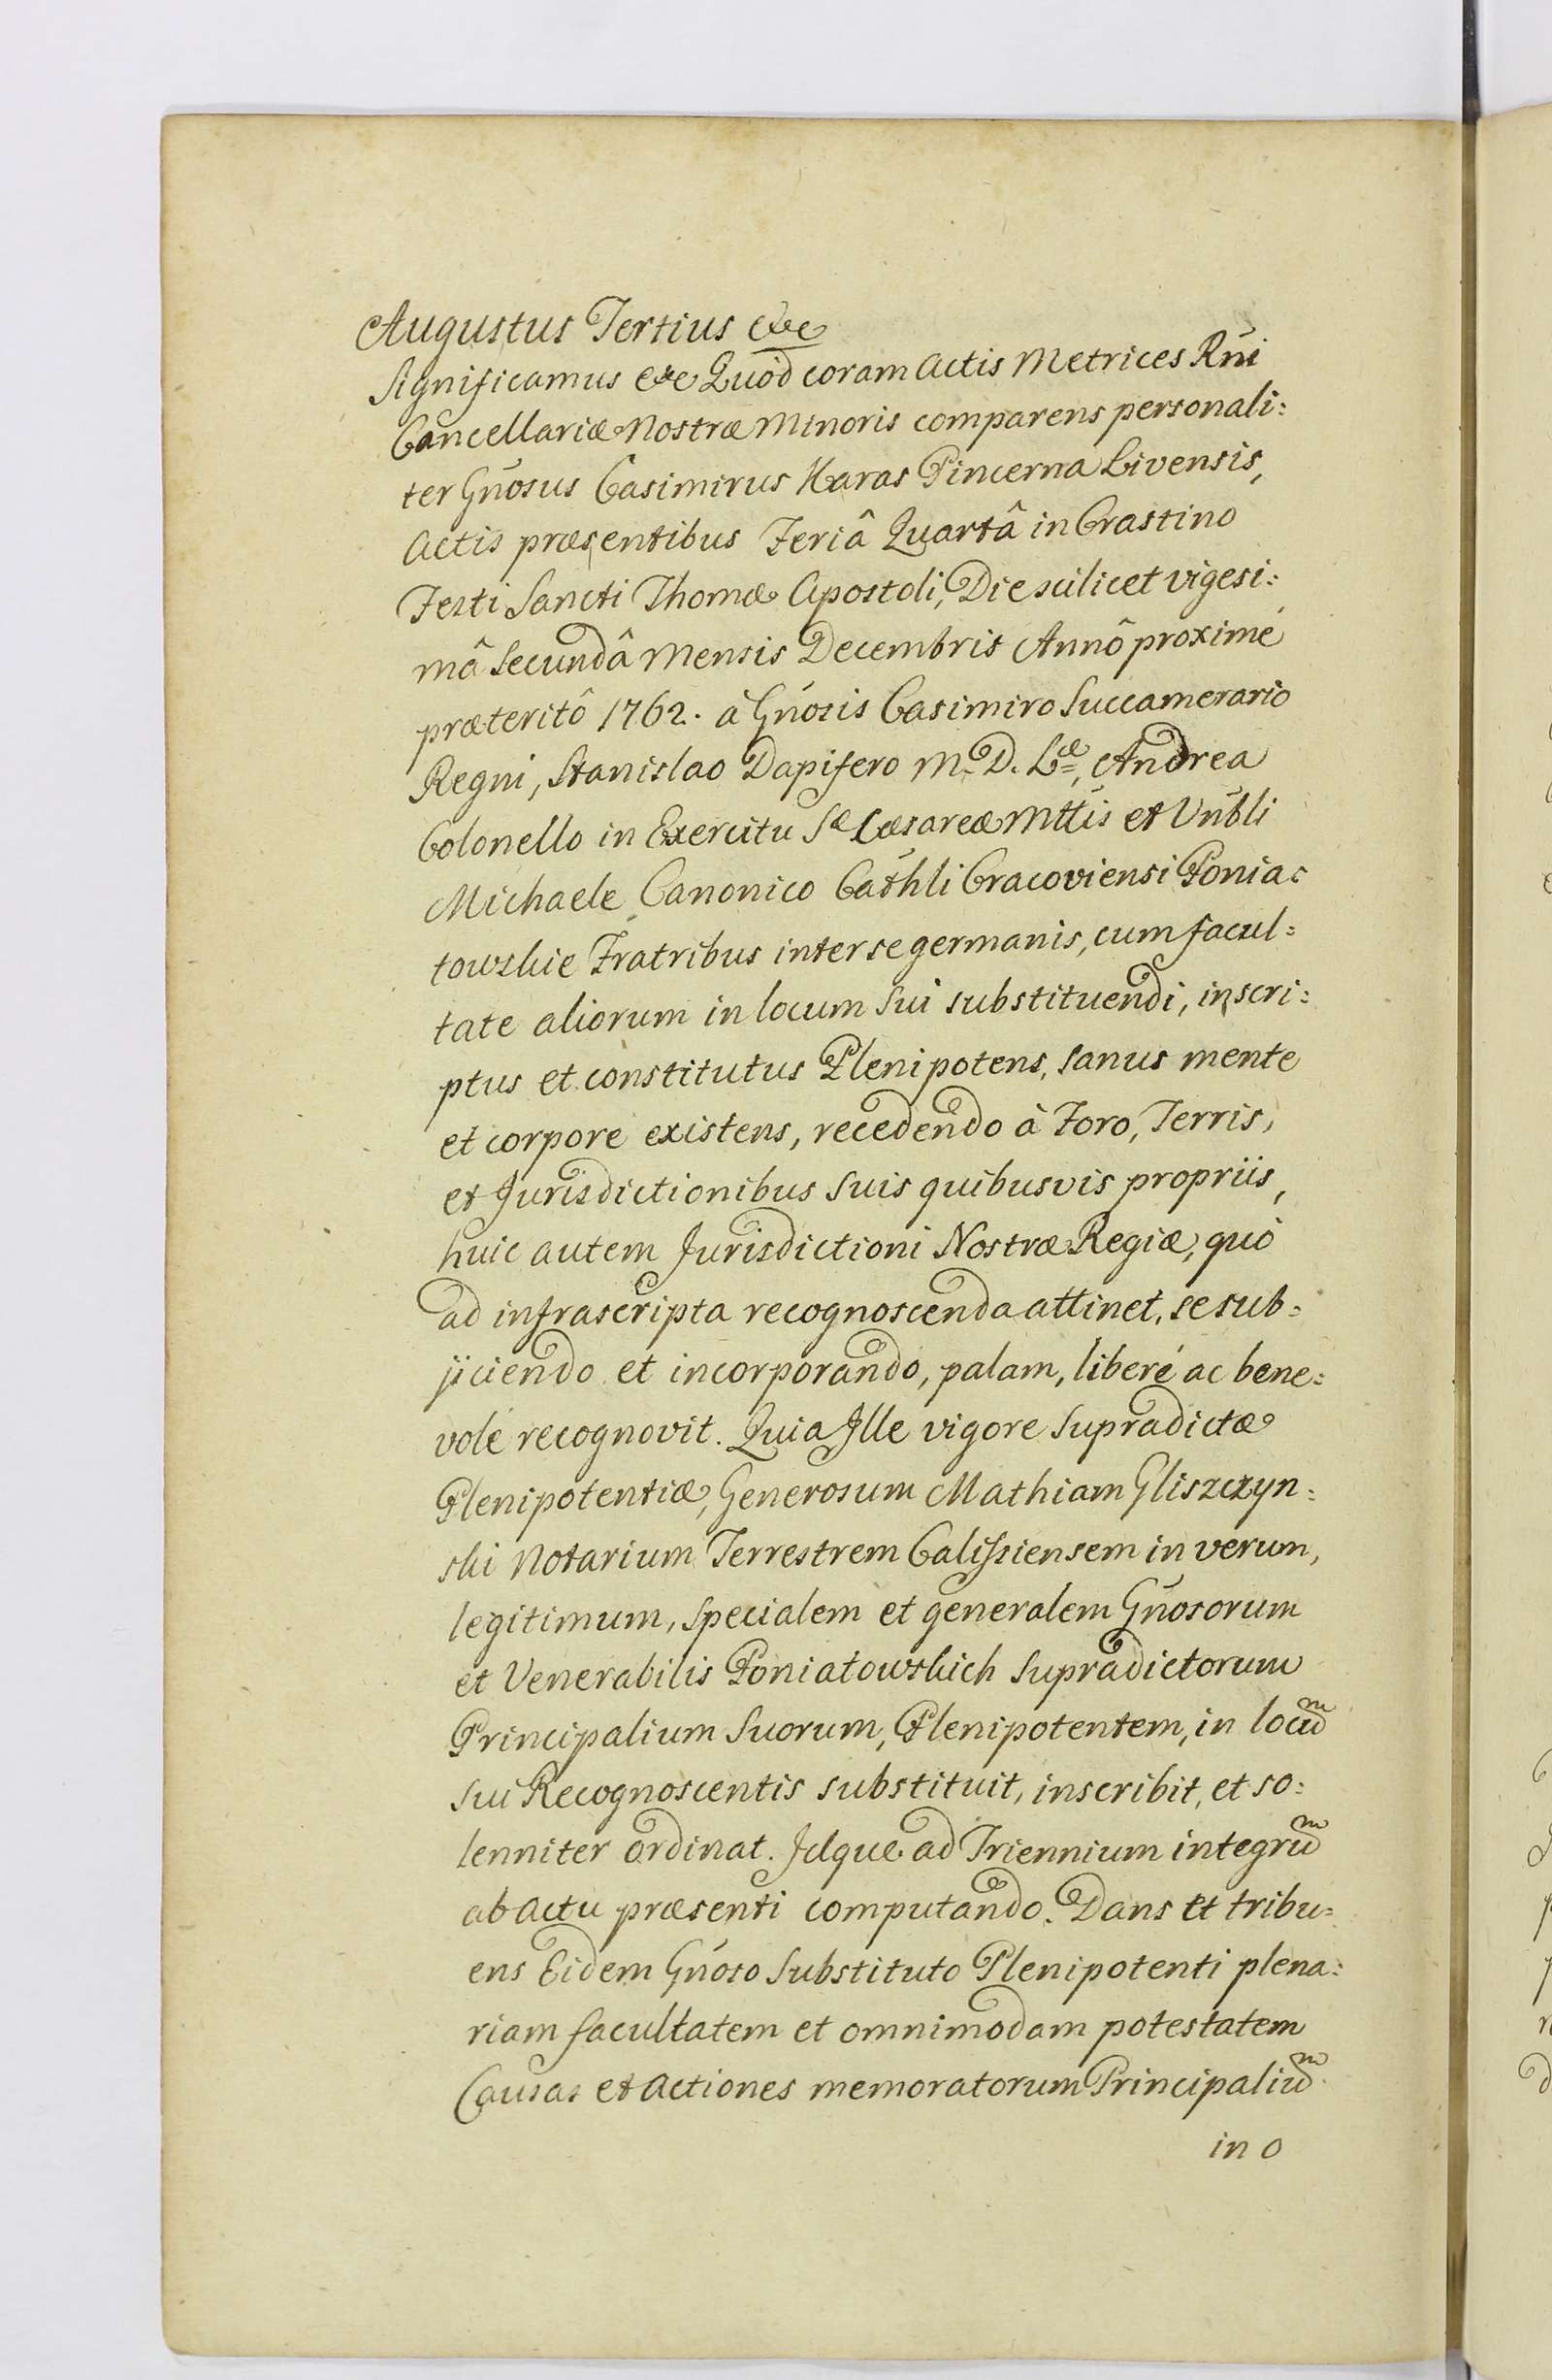 Augustus Tertius etc
Significamus etc Quòd coram Actis Metrices Rñi
Cancellariæ Nostræ Minoris comparens personali:
ter Gñosus Casimirus Karas Pincerna Livensis,
Actis præsentibus Feriâ Quartâ in Crastino
Festi Sancti Thomæ Apostoli, Die scilicet vigesi:
mâ secundâ Mensis Decembris Annô proximè
præteritô 1762. à Gñosis Casimiro Succamerario
Regni, Stanislao Dapifero M. D. Læ, Andrea
Colonello in Exercitu Sæ Cæsareæ Mttis et Vñbli
Michaele Canonico Cathli Cracoviensi Ponia:
towskie Fratribus inter se germanis, cum facul:
tate aliorum in locum sui substituendi, inscri:
ptus et constitutus Plenipotens, sanus mente
et corpore existens, recedendo à Foro, Terris,
et Jurisdictionibus suis quibusvis propriis,
huic autem Jurisdictioni Nostræ Regiæ, quò
ad infrascripta recognoscenda attinet, se sub:
jiciendo et incorporando, palam, liberè ac bene:
volè recognovit. Quia Ille vigore supradictæ
Plenipotentiæ, Generosum Mathiam Gliszczyn:
ski Notarium Terrestrem Calissiensem in verum,
legitimum, specialem et generalem Gñosorum
et Venerabilis Poniatowskich supradictorum
Principalium suorum, Plenipotentem, in locum
sui Recognoscentis substituit, inscribit, et so:
lenniter ordinat. Idque ad Triennium integrum
ab actu præsenti computando. Dans et tribu:
ens Eidem Gñoso substituto Plenipotenti plena:
riam facultatem et omnimodam potestatem
Causas et Actiones memoratorum Principalium
in o